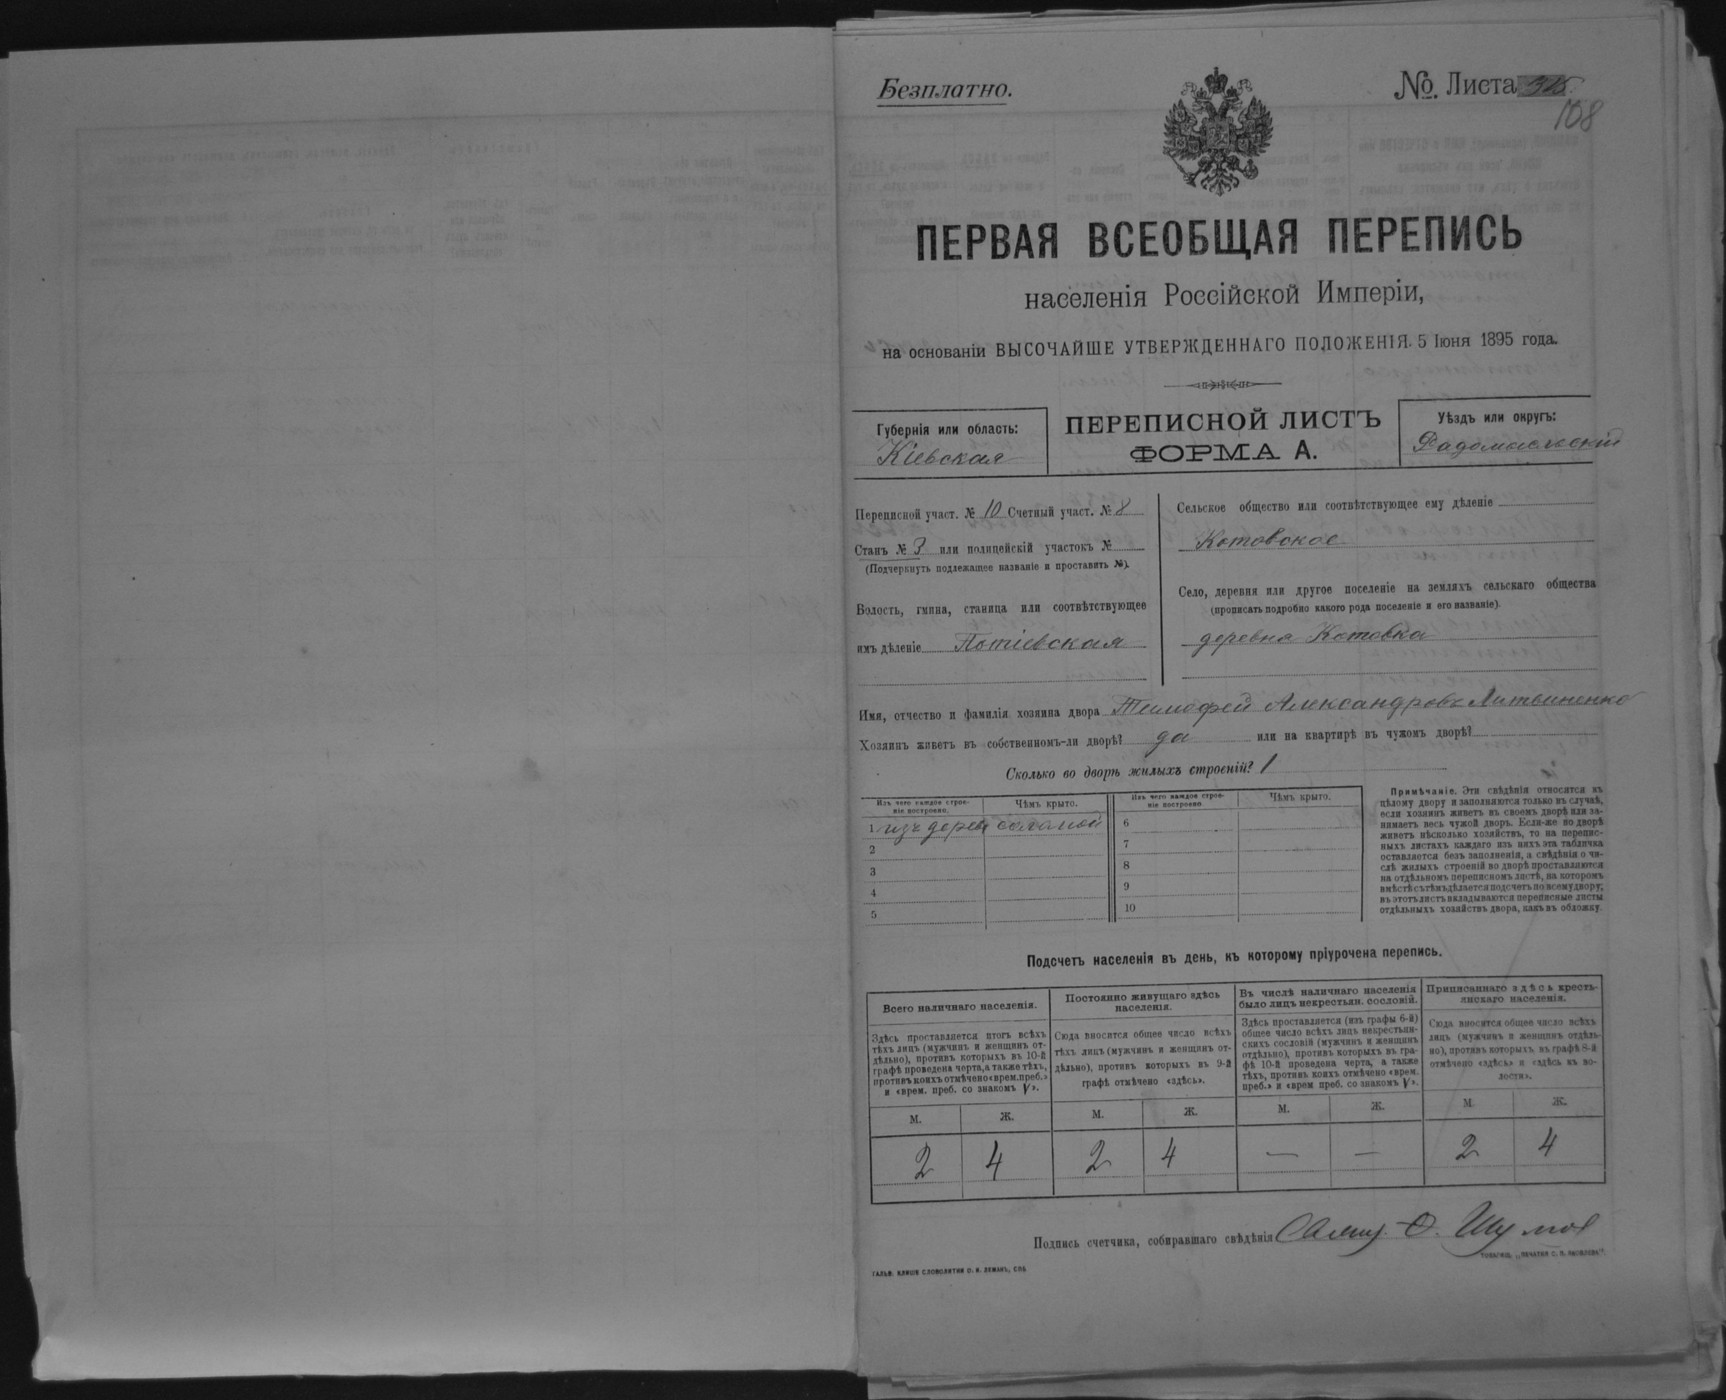 Безплатно.
№. Листа
108
ПЕРВАЯ ВСЕОБЩАЯ ПЕРЕПИСЬ
населенія Россійской Имперіи,
на основаніи ВЫСОЧАЙШЕ УТВЕРЖДЕННАГО ПОЛОЖЕНІЯ 5 Іюня 1895 года.
Губернія или область:
Кіевская
ПЕРЕПИСНОЙ ЛИСТЪ
ФОРМА А.
Уѣздъ или округъ:
Радомысльскій
Переписной участ. № 10 Счетный участ. № 8
Станъ № 3 или полицейскій участокъ №
(Подчеркнуть подлежащее названіе и проставить №).
Волость, гмина, станица или соотвѣтствующее
имъ дѣленіе Потіевская
Сельское общество или соотвѣтствующее ему дѣленіе
Котовское
Село, деревня или другое поселеніе на земляхъ сельскаго общества
(прописать подробно какого рода поселеніе и его названіе).
деревна Котовка
Имя, отчество и фамилія хозяина двора Тимофей Александровъ Литвиненко
Хозяинъ живетъ въ собственномъ-ли дворѣ? да или на квартирѣ въ чужомъ дворѣ?
Сколько во дворѣ жилыхъ строеній? 1
Изъ чего каждое строе-
ніе построено.
Чѣмъ крыто.
Изъ чего каждое строе-
ніе построено
Чѣмъ крыто.
1 изъ дерева соломой
2
3
4
5
6
7
8
9
10
Примѣчаніе. Эти свѣдѣнія относятся къ
цѣлому двору и заполняются только въ случаѣ,
если хозяинъ живетъ въ своемъ дворѣ или за-
нимаетъ весь чужой дворъ. Если-же во дворѣ
живетъ нѣсколько хозяйствъ, то на перепис-
ныхъ листахъ каждаго изъ нихъ эта табличка
оставляется безъ заполненія, а свѣдѣнія о чи-
слѣ жилыхъ строеній во дворѣ проставляются
на отдѣльномъ переписномъ листѣ, на которомъ
вмѣстѣ съ тѣмъ дѣлается подсчетъ по всему двору;
въ этотъ листъ вкладываются переписные листы
отдѣльныхъ хозяйствъ двора, какъ въ обложку.
Подсчетъ населенія въ день, къ которому пріурочена перепись.
Всего наличнаго населенія.
Здѣсь проставляется итогъ всѣхъ
тѣхъ лицъ (мужчинъ и женщинъ от-
дѣльно), противъ которыхъ въ 10-й
графѣ проведена черта, а также тѣхъ,
противъ коихъ отмѣчено «врем. преб.»
и «врем. преб. со знакомъ V».
Постоянно живущаго здѣсь
населенія.
Сюда вносится общее число всѣхъ
тѣхъ лицъ (мужчинъ и женщинъ от-
дѣльно), противъ которыхъ въ 9-й
графѣ отмѣчено «здѣсь».
Въ числѣ наличнаго населенія
было лицъ некрестьян. сословій.
Здѣсь проставляется (изъ графы 6-й)
общее число всѣхъ лицъ некрестьян-
скихъ сословій (мужчинъ и женщинъ
отдѣльно), противъ которыхъ въ гра-
фѣ 10-й проведена черта, а также
тѣхъ, противъ коихъ отмѣчено «врем.
преб.» и «врем преб. со знакомъ V».
Приписаннаго здѣсь кресть-
янскаго населенія.
Сюда вносится общее число всѣхъ
лицъ (мужчинъ и женщинъ отдѣль-
но), противъ которыхъ въ графѣ 8-й
отмѣчено «здѣсь» и «здѣсь къ во-
лости».
М. Ж. М. Ж. М. Ж. М Ж.
2 4 2 4 — — 2 4
Подпись счетчика, собиравшаго свѣдѣнія
ГАЛЬВ. КЛИШЕ СЛОВОЛИТНИ О. И. ЛЕМАНЪ, СПБ
ТОВАРИЩ. „ПЕЧАТНЯ С. П. ЯКОВЛЕВА"